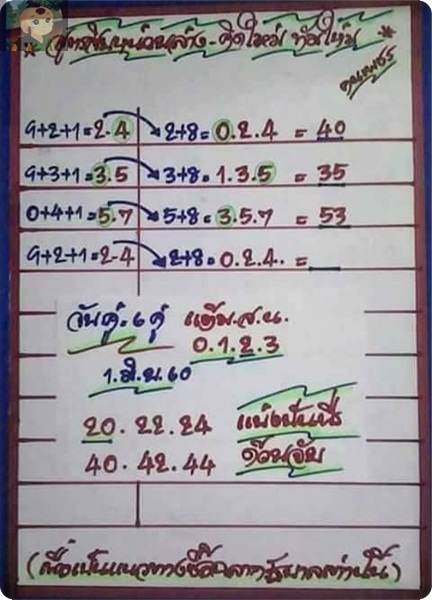 * สูตรยืนหน่วยล่าง-คิดใหม่ ทำใหม่ *
9+2+1=2.4 2+8=0.2.4 = 40
9+3+1=3.5 3+8=1.3.5 = 35
0+4+1=5.7 5+8=3.5.7 = 53
9+2+1=2-4 2+8=0.2.4. =
แต้ม.ส.น.
0.1.2.3
1.มิ.ย.60
20.22.24
40.42.44 ด้วนจับ
(เพื่อเป็นแนวทางซื้อสลากรัฐบาลเท่านั้น)